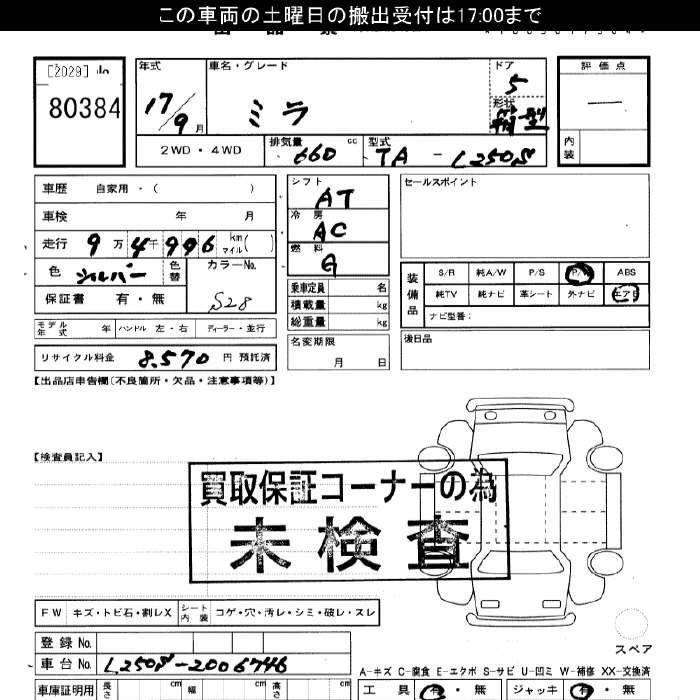 この車両の土曜日の搬出受付は17:00まで
[2029]
80384
年式
17/9月
車名・グレード
ミラ
ドア
5
形状
箱型
評価点
―
内装
2WD・4WD
排気量 660 cc
型式 TA - L250S
車歴 自家用・( )
車検 年 月
走行 9万4千996 km マイル( )
色 シルバー 色替
カラーNo. S28
保証書 有・無
シフト AT
冷房 AC
燃料 G
乗車定員 名
積載量 kg
総重量 kg
セールスポイント
装備品
S/R 純A/W P/S P/W ABS
純TV 純ナビ 革シート 外ナビ エアB
ナビ型番:
モデル年式 年 ハンドル 左・右 ディーラー・並行
名変期限 月 日
後日品
リサイクル料金 8,570 円 預託済
【出品店申告欄(不良箇所・欠品・注意事項等)】
【検査員記入】
買取保証コーナーの為
未検査
FW キズ・トビ石・割レX シート内装 コゲ・穴・汚レ・シミ・破レ・スレ
登録No.
車台No. L250S-2006746
スペア
A-キズ C-腐食 E-エクボ S-サビ U-凹ミ W-補修 XX-交換済
車庫証明用 長さ cm 幅 cm 高さ cm
工具 有・無 ジャッキ 有・無